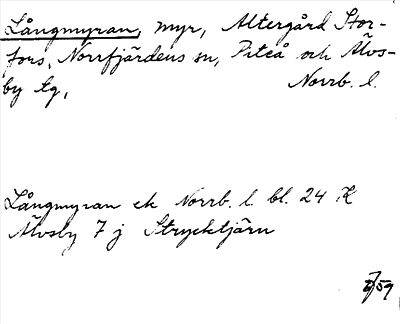 Långmyran, myr, Altergård Stor-
fors, Norrfjärdens sn, Piteå och Älvs-
by tg, Norrb. l.
Långmyran ek Norrb. l bl. 24 K
Älvsby 7 j Strycktjärn
/59